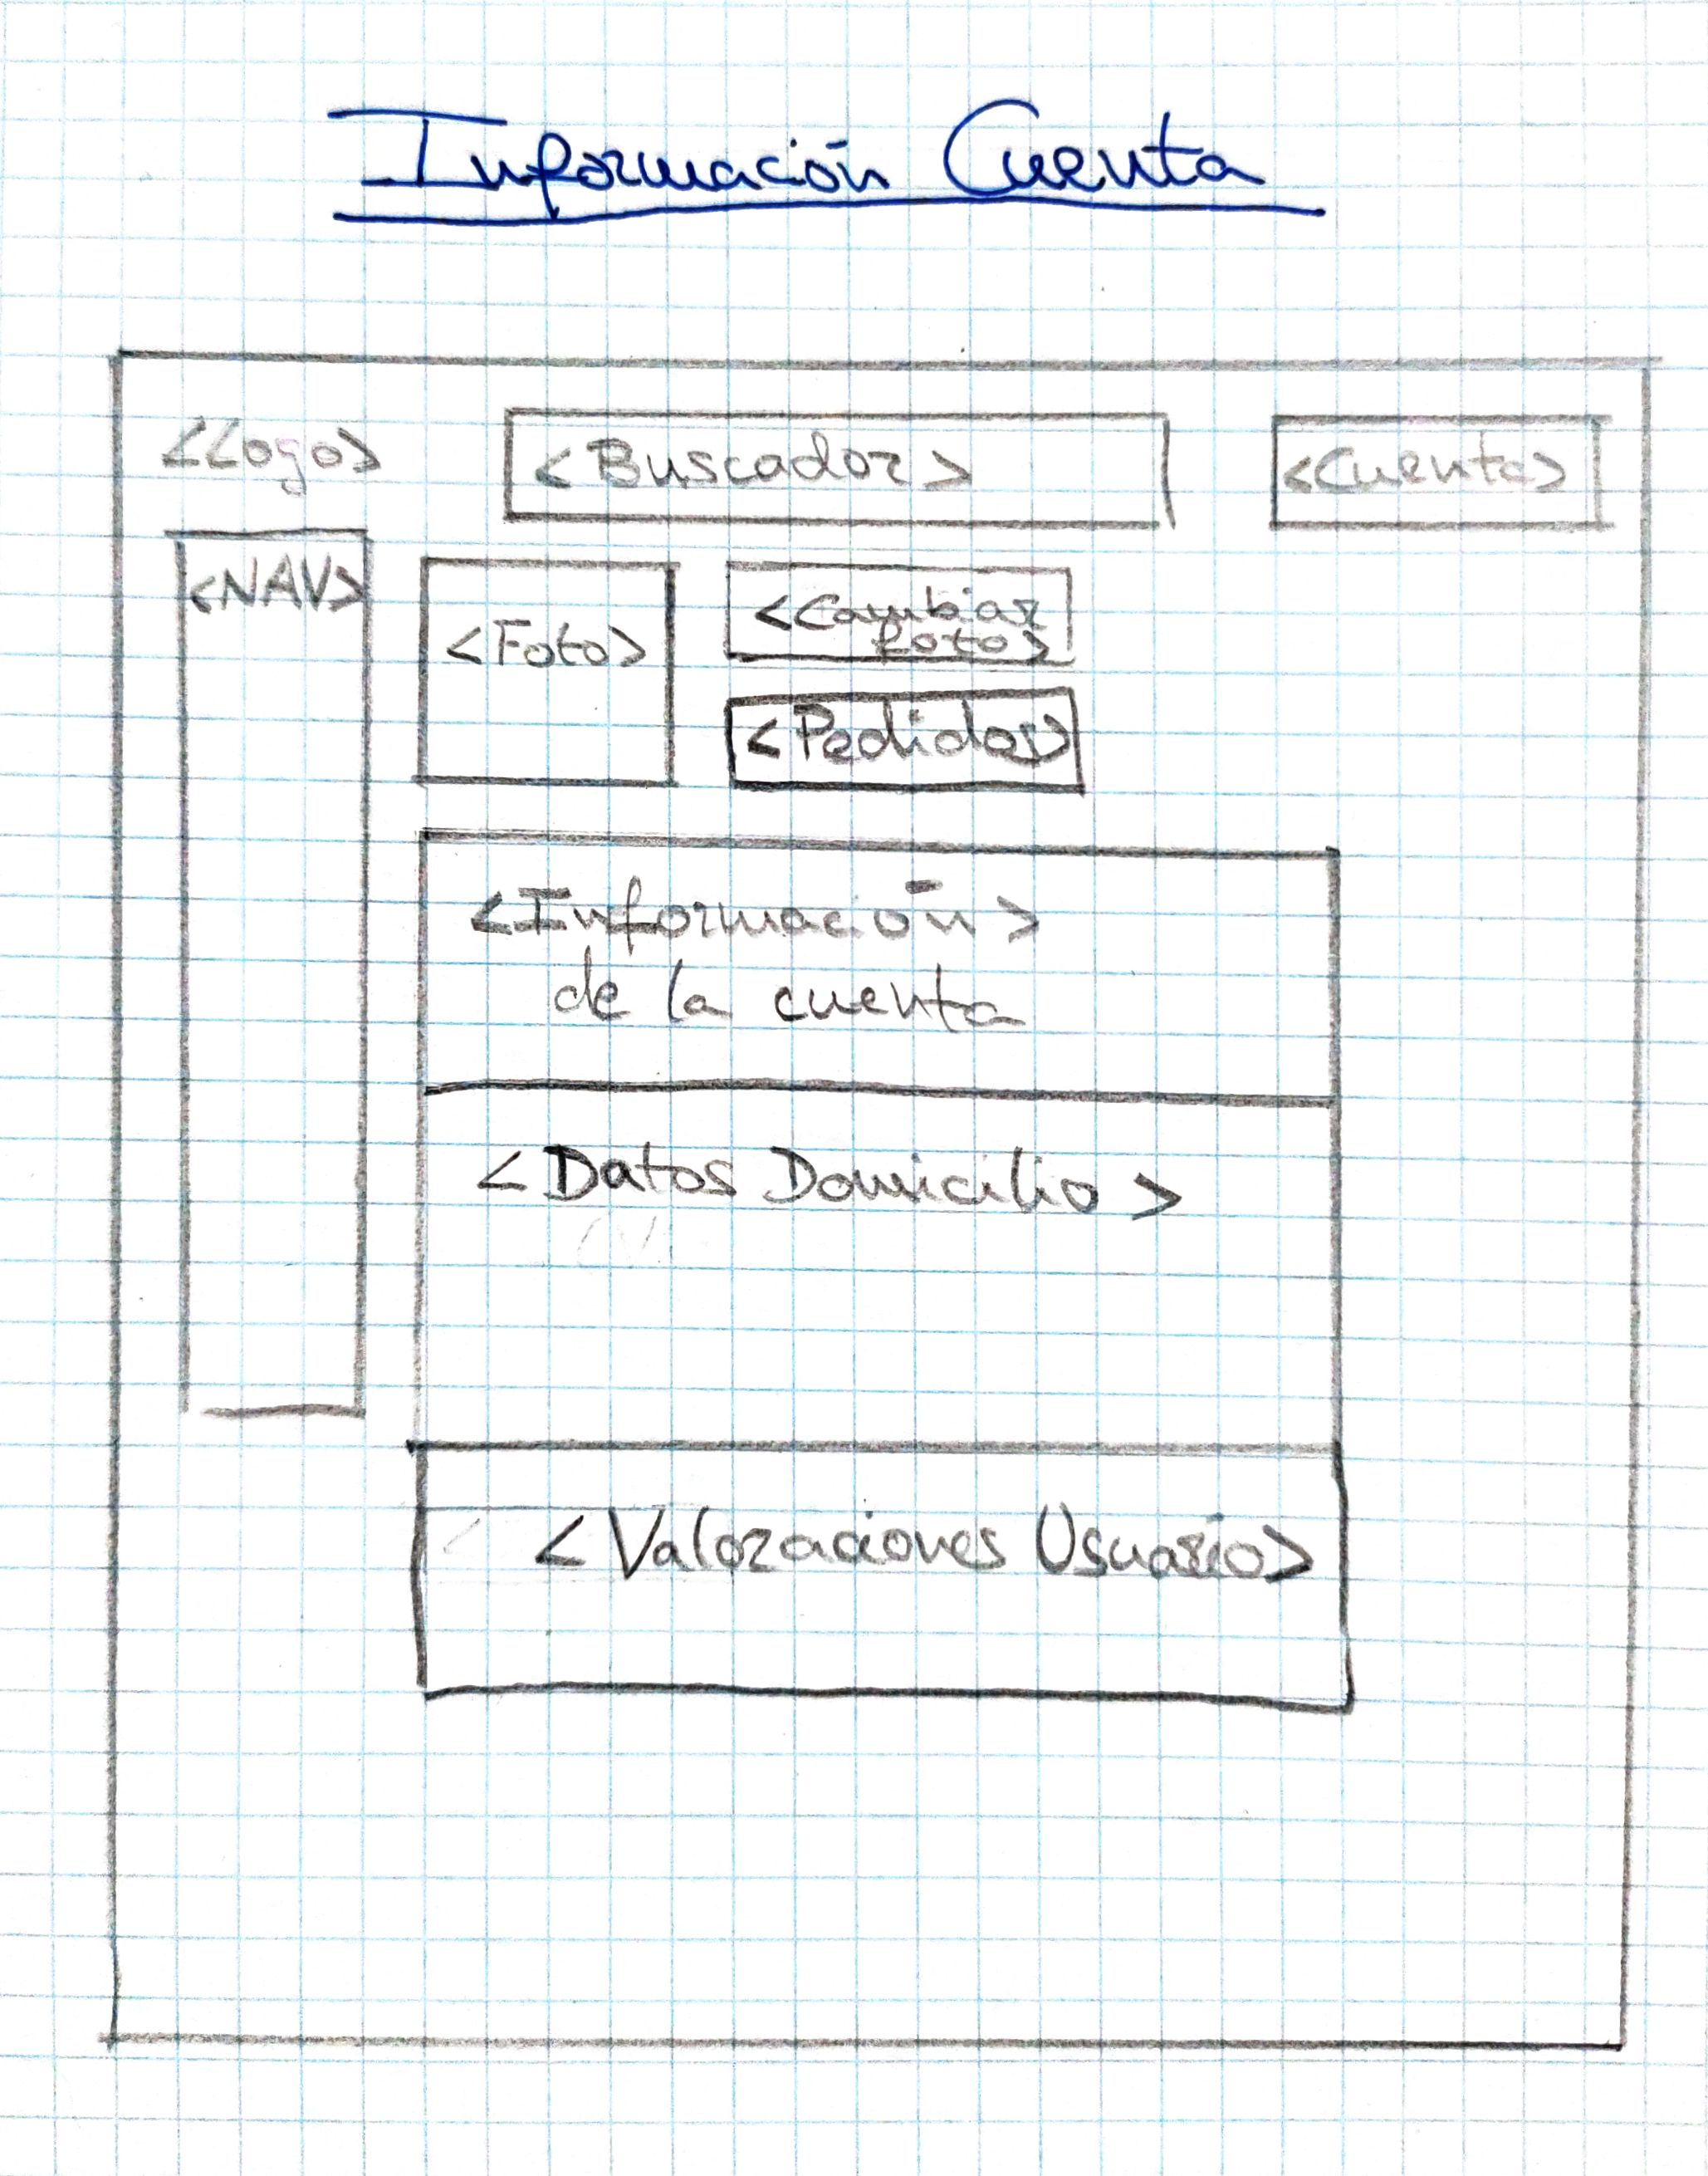 Información Cuenta
<Logo>
<Buscador>
<Cuenta>
<NAV>
<Foto>
<Cambiar
foto>
<Pedidos>
<Información>
de la cuenta
<Datos Domicilio>
<Valoraciones Usuario>